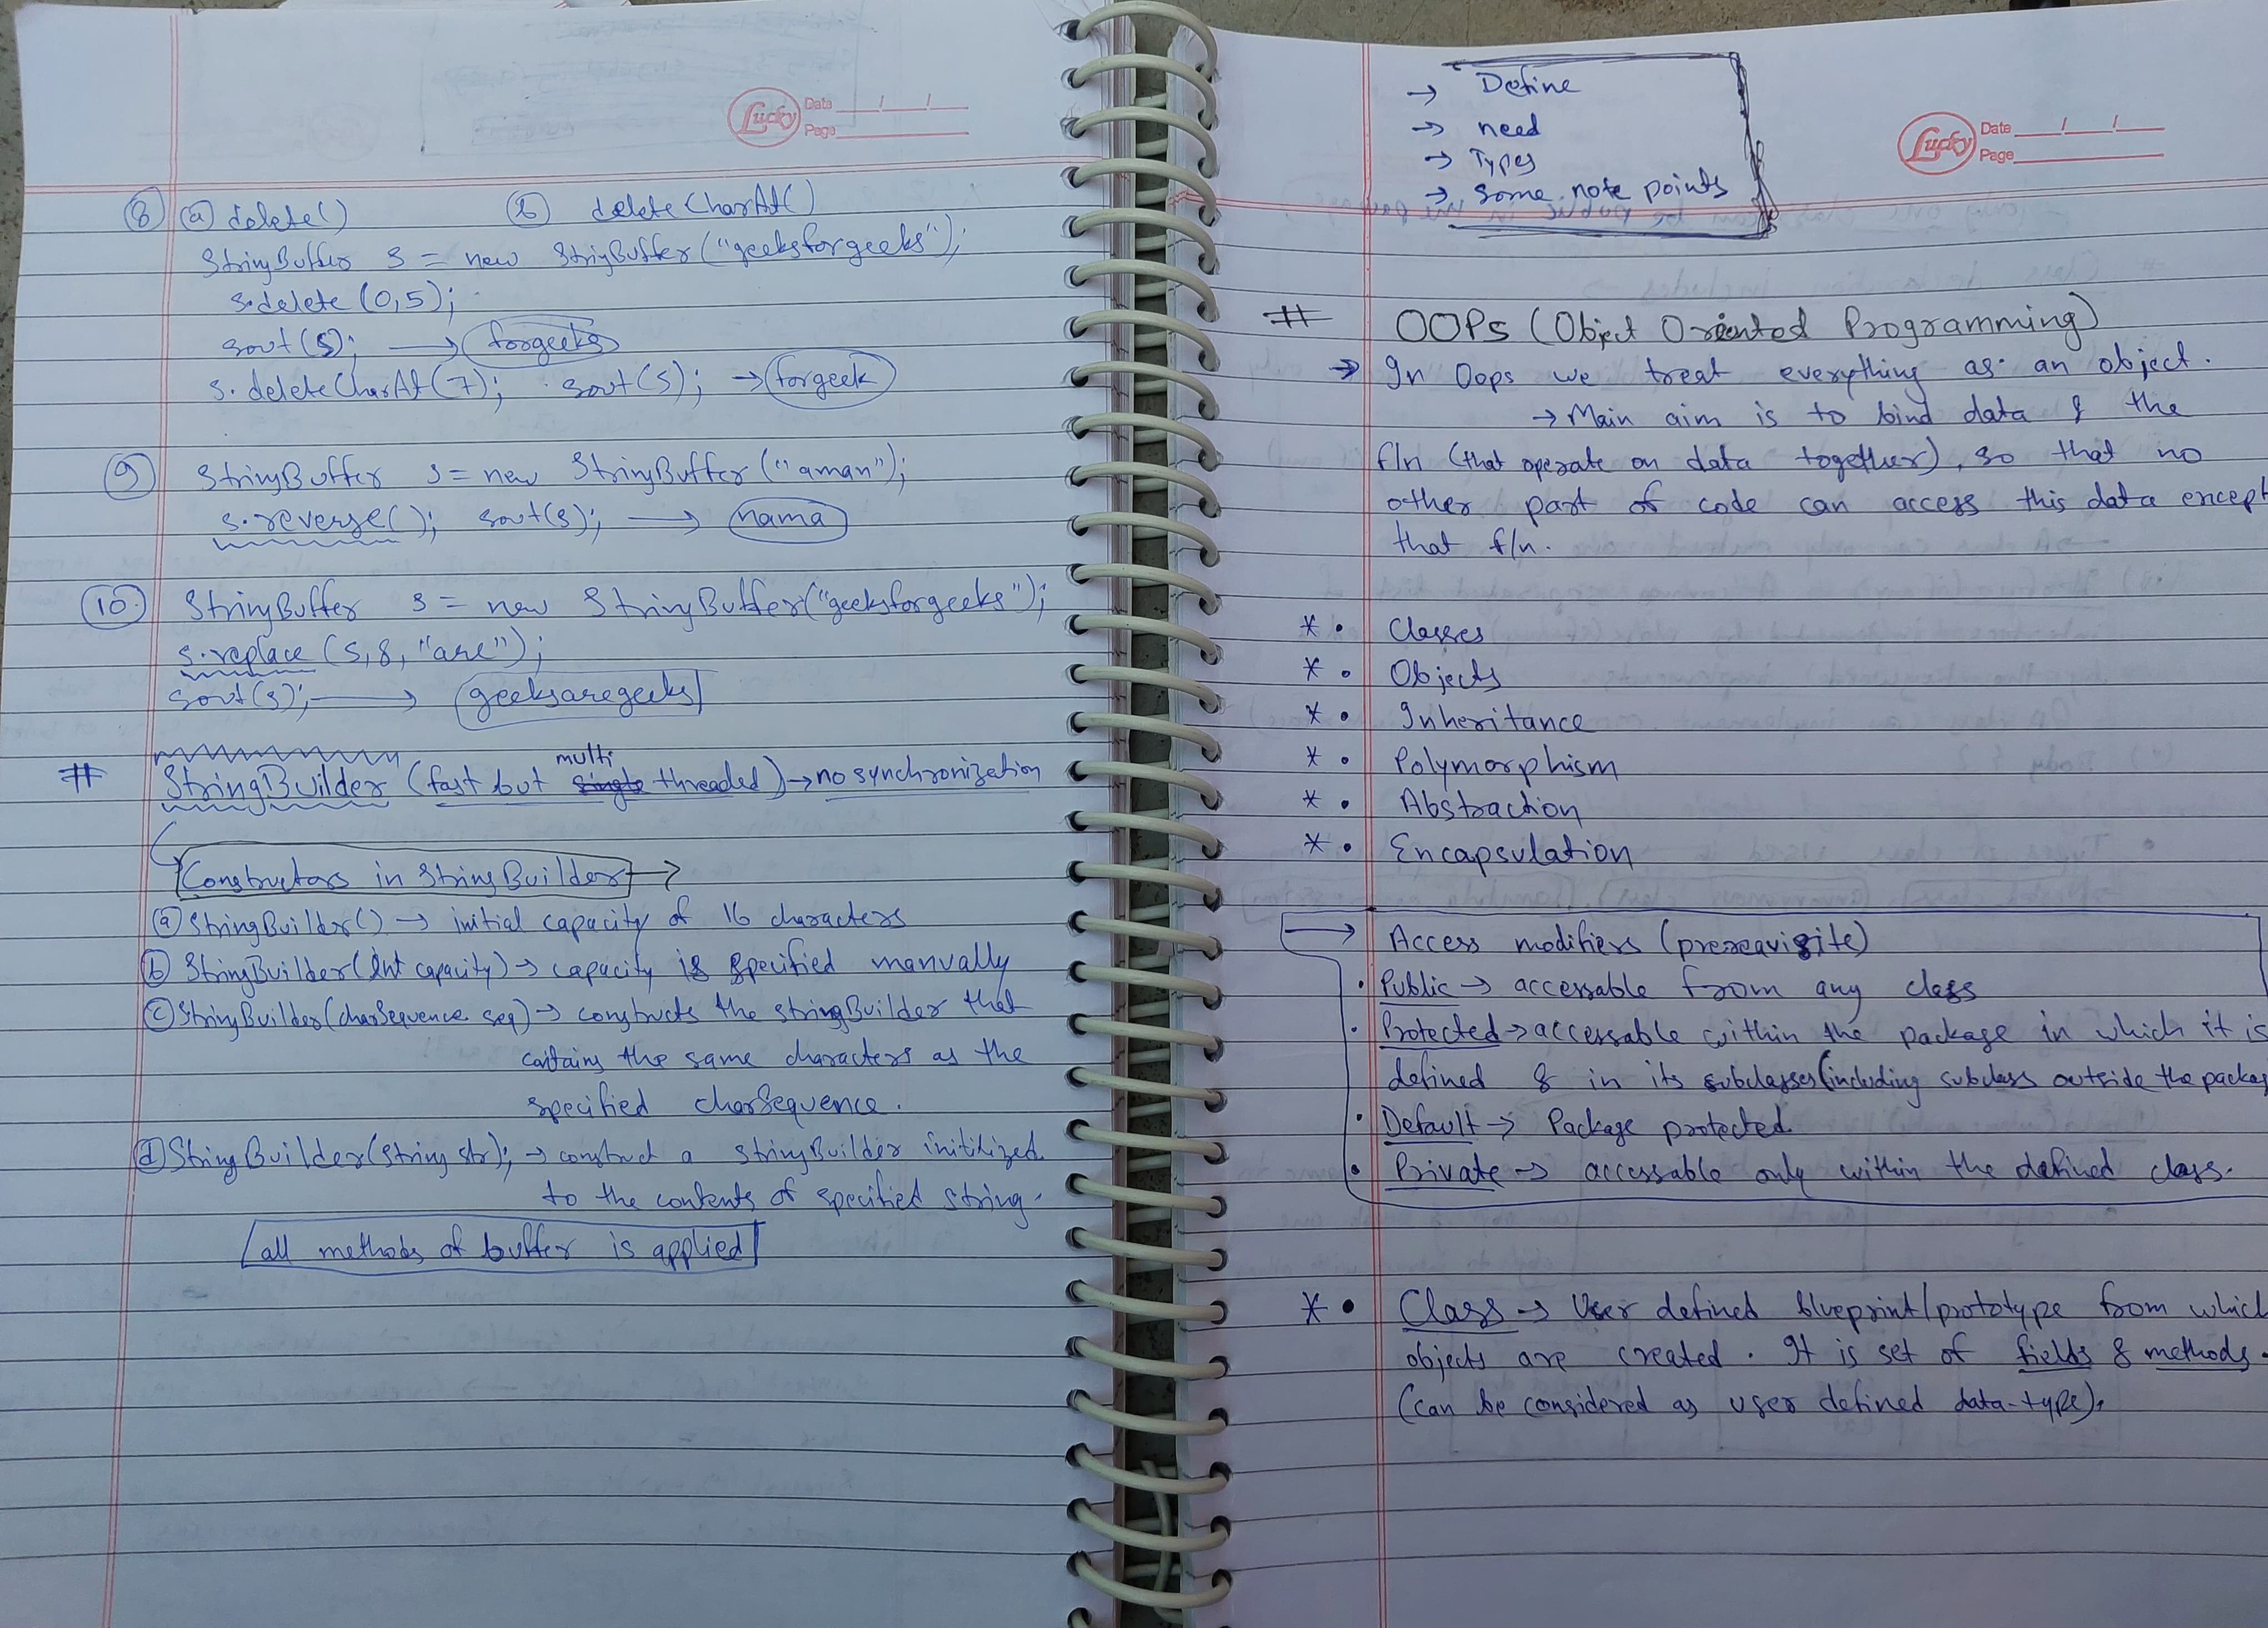 Lucky Data / /
Page
⑧ ⓐ delete() ⓑ deleteCharAt()
StringBuffer s = new StringBuffer("geeksforgeeks");
s.delete (0,5);
sout(s); → forgeeks
s.deleteCharAt(7); sout(s); → forgeek
⑨ StringBuffer s = new StringBuffer("aman");
s.reverse(); sout(s); → nama
⑩ StringBuffer s = new StringBuffer("geeksforgeeks");
s.replace (5,8, "are");
sout(s); → geeksaregeeks
multi
# StringBuilder (fast but single threaded) → no synchronization
Constructors in StringBuilder →
ⓐ StringBuilder() → initial capacity of 16 characters
ⓑ StringBuilder(Int capacity) → capacity is specified manually
ⓒ StringBuilder(charSequence seq) → constructs the stringBuilder that
contains the same characters as the
specified charSequence.
ⓓ StringBuilder(String str); → construct a stringBuilder initilized
to the contents of specified string.
all methods of buffer is applied
→ Define
→ need
→ Types
→ some note points
Lucky Date / /
Page
# OOPs (Object Oriented Programming)
→ In Oops we treat everything as an object.
→ Main aim is to bind data & the
f/n (that operate on data together), so that no
other part of code can access this data except
that f/n.
* • Classes
* • Objects
* • Inheritance
* • Polymorphism
* • Abstraction
* • Encapsulation
→ Access modifiers (prerequisite)
• Public → accessable from any class
• Protected → accessable within the package in which it is
defined & in its subclasses (including subclass outside the packag
• Default → Package protected.
• Private → accessable only within the defined class.
* • Class → User defined blueprint/prototype from which
objects are created. It is set of fields & methods.
(can be considered as user defined data-type).